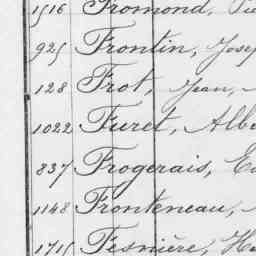 1516 Fromond,
925 Frontin, Josep
128 Frot, Jean,
1022 Furet, Albe
837 Frogerais,
1148 Fronteneau,
1715 Fesnière,